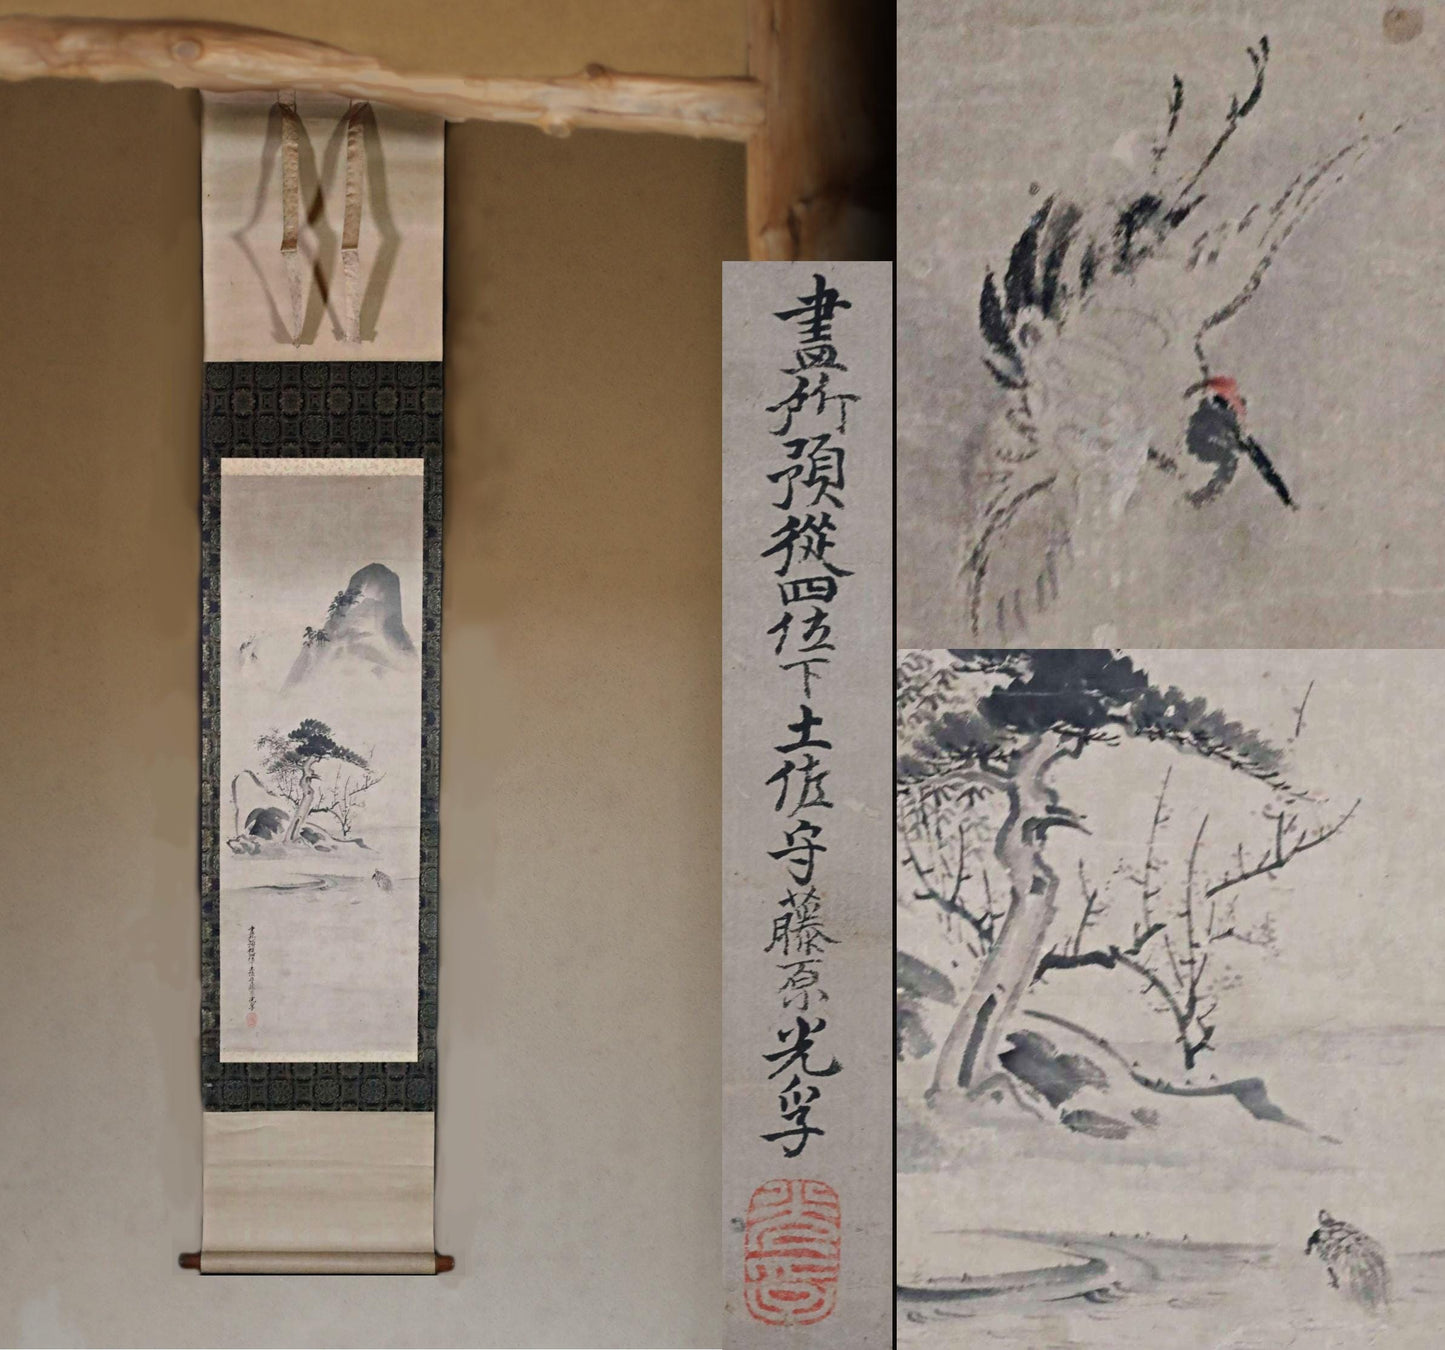 畫所預從四位下土佐守藤原光孚
光孚